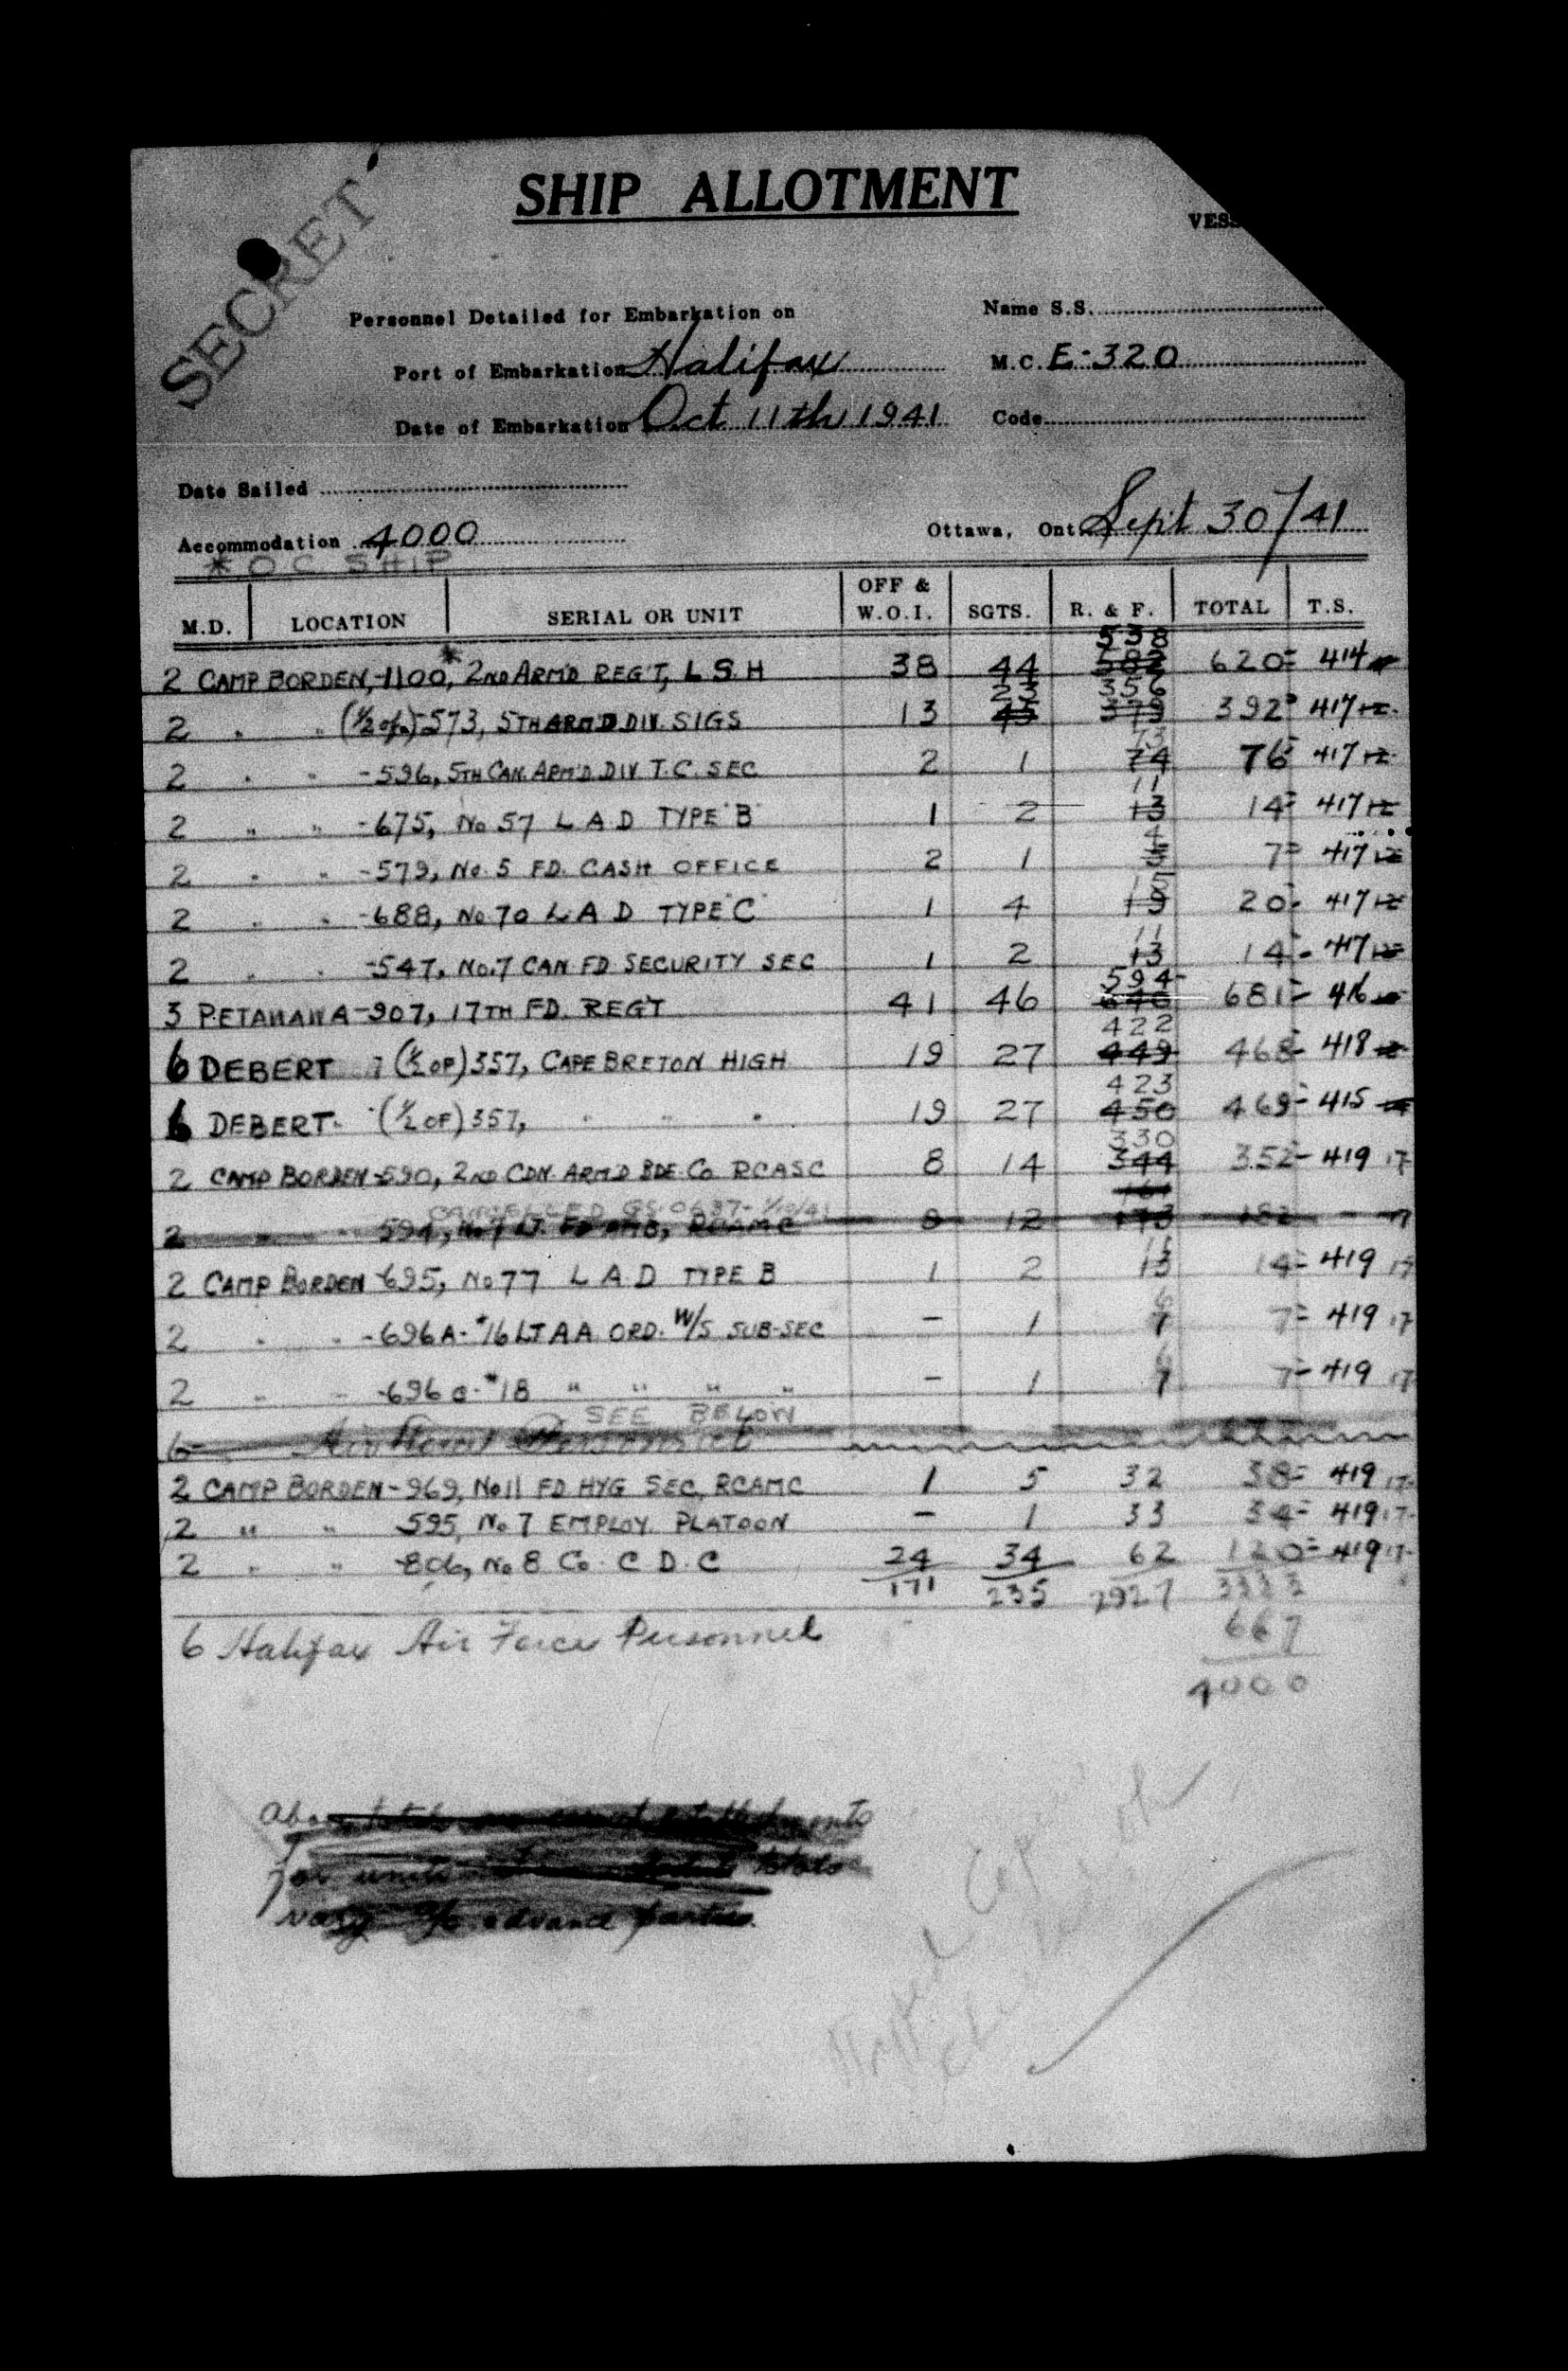 SHIP ALLOTMENT
SECRET
Personnel Detailed for Embarkation on
Name S.S.
Port of Embarkation Halifax
M.C. E-320
Date of Embarkation Oct 11th 1941
Code
Date Sailed
Accommodation 4000
Ottawa, Ont. Sept 30/41
* O C SHIP
M.D. LOCATION SERIAL OR UNIT OFF & W.O.I. SGTS. R. & F. TOTAL T.S.
538
2 CAMP BORDEN,-1100,* 2ND ARM'D REG'T, L S H 38 44 582 620= 414
23 356
2 " " (½ of)-573, 5TH ARM'D DIV. SIGS 13 45 379 392= 417 12
73
2 " " -596, 5TH CAN. ARM'D. DIV T.C. SEC 2 1 74 76= 417 12
11
2 " " -675, No 57 L A D TYPE "B" 1 2 13 14= 417 12
4
2 " " -579, No. 5 FD. CASH OFFICE 2 1 5 7= 417 12
15
2 " " -688, No 70 L A D TYPE "C" 1 4 19 20- 417 12
11
2 " " -547, No. 7 CAN FD SECURITY SEC 1 2 13 14- 417 12
594-
3 PETAWAWA-907, 17TH FD. REG'T 41 46 640 681= 416
422
6 DEBERT (½ OF) 357, CAPE BRETON HIGH 19 27 449 468- 418
423
6 DEBERT- (½ OF) 357, " " " 19 27 450 469- 415
330
2 CAMP BORDEN-590, 2ND CDN. ARM'D BDE. Co RCASC 8 14 344 352- 419 17
CANCELLED GS 0637- 1/10/41 161
2 " " 594, No 7 LT. FD AMB, RCAMC 8 12 173 - 17
11
2 CAMP BORDEN-695, No 77 L A D TYPE B 1 2 13 14= 419 17
6
2 " " -696A-#16 LT AA ORD. W/S SUB-SEC - 1 7 7= 419 17
6
2 " " -696 #18 " " " " - 1 7 7- 419 17
SEE BELOW
6 Air Force Personnel
2 CAMP BORDEN-969, No 11 FD HYG SEC, RCAMC 1 5 32 38= 419 17
2 " " 595, No 7 EMPLOY. PLATOON - 1 33 34= 419 17
2 " " -806, No 8 Co. C D C 24 34 62 120= 419 17
171 235 2927 3333
6 Halifax Air Force Personnel 667
4000
for units
vary advance parties.